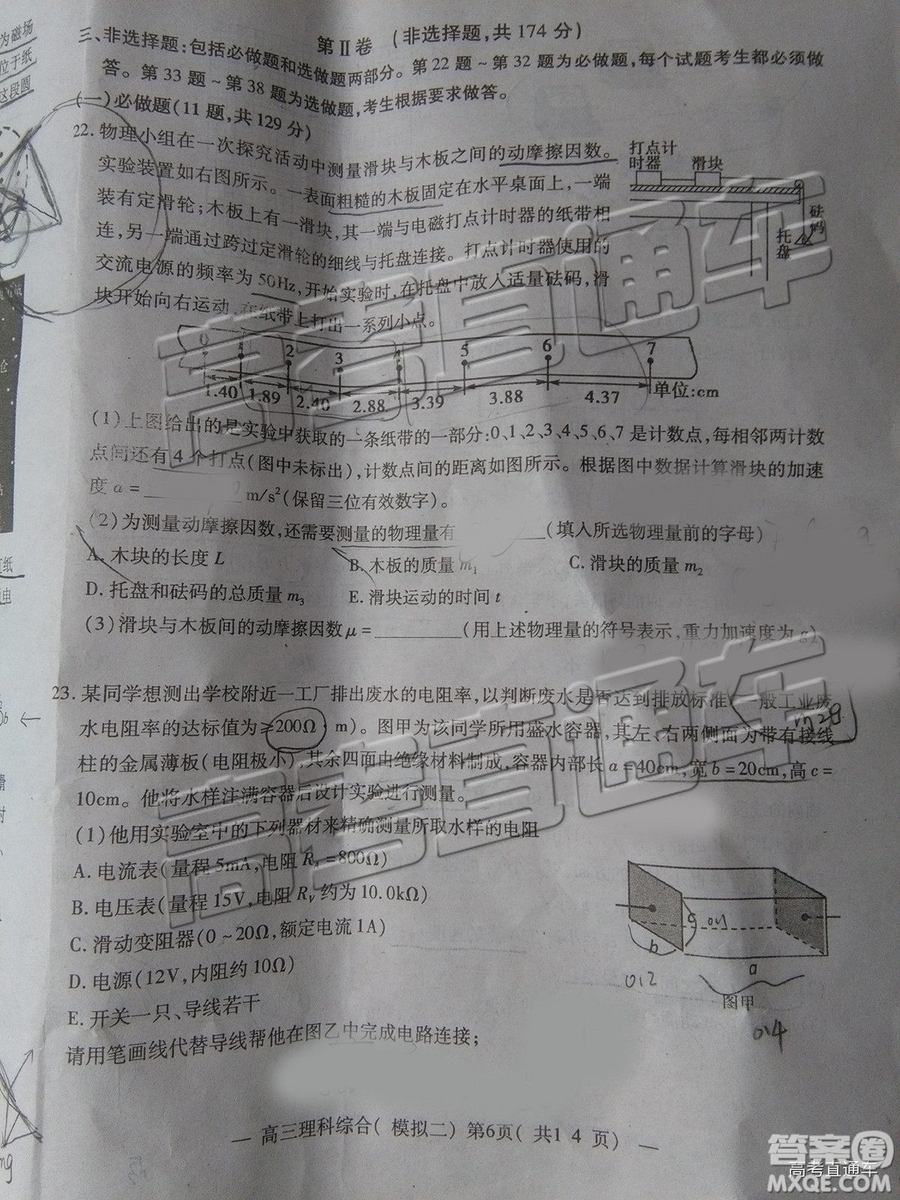 为磁场
位于纸
这段圆
第Ⅱ卷 (非选择题,共174分)
三、非选择题:包括必做题和选做题两部分。第22题~第32题为必做题,每个试题考生都必须做
答。第33题~第38题为选做题,考生根据要求做答。
(一)必做题(11题,共129分)
22.物理小组在一次探究活动中测量滑块与木板之间的动摩擦因数。
实验装置如右图所示。一表面粗糙的木板固定在水平桌面上,一端
装有定滑轮;木板上有一滑块,其一端与电磁打点计时器的纸带相
连,另一端通过跨过定滑轮的细线与托盘连接。打点计时器使用的
交流电源的频率为50Hz,开始实验时,在托盘中放入适量砝码,滑
块开始向右运动,在纸带上打出一系列小点。
打点计
时器 滑块
砝码
托盘
2 3 5 6 7
1.40 1.89 2.40 2.88 3.39 3.88 4.37 单位:cm
(1)上图给出的是实验中获取的一条纸带的一部分:0、1、2、3、4、5、6、7是计数点,每相邻两计数
点间还有4个打点(图中未标出),计数点间的距离如图所示。根据图中数据计算滑块的加速
度a=______m/s²(保留三位有效数字)。
(2)为测量动摩擦因数,还需要测量的物理量有______(填入所选物理量前的字母)
A.木块的长度L B.木板的质量m₁ C.滑块的质量m₂
D.托盘和砝码的总质量m₃ E.滑块运动的时间t
(3)滑块与木板间的动摩擦因数μ=______(用上述物理量的符号表示,重力加速度为g)
23.某同学想测出学校附近一工厂排出废水的电阻率,以判断废水是否达到排放标准(一般工业废
水电阻率的达标值为≥200Ω·m)。图甲为该同学所用盛水容器,其左、右两侧面为带有接线
柱的金属薄板(电阻极小),其余四面由绝缘材料制成,容器内部长a=40cm,宽b=20cm,高c=
10cm。他将水样注满容器后设计实验进行测量。
(1)他用实验室中的下列器材来精确测量所取水样的电阻
A.电流表(量程5mA,电阻R_A=800Ω)
B.电压表(量程15V,电阻R_V约为10.0kΩ)
C.滑动变阻器(0~20Ω,额定电流1A)
D.电源(12V,内阻约10Ω)
E.开关一只、导线若干
请用笔画线代替导线帮他在图乙中完成电路连接;
b c 0.1
a
0.2
图甲
0.4
— 高三理科综合( 模拟二) 第6页( 共1 4 页) —
高考直通车
高考直通车
答案圈
高考直通车
MXQE.COM